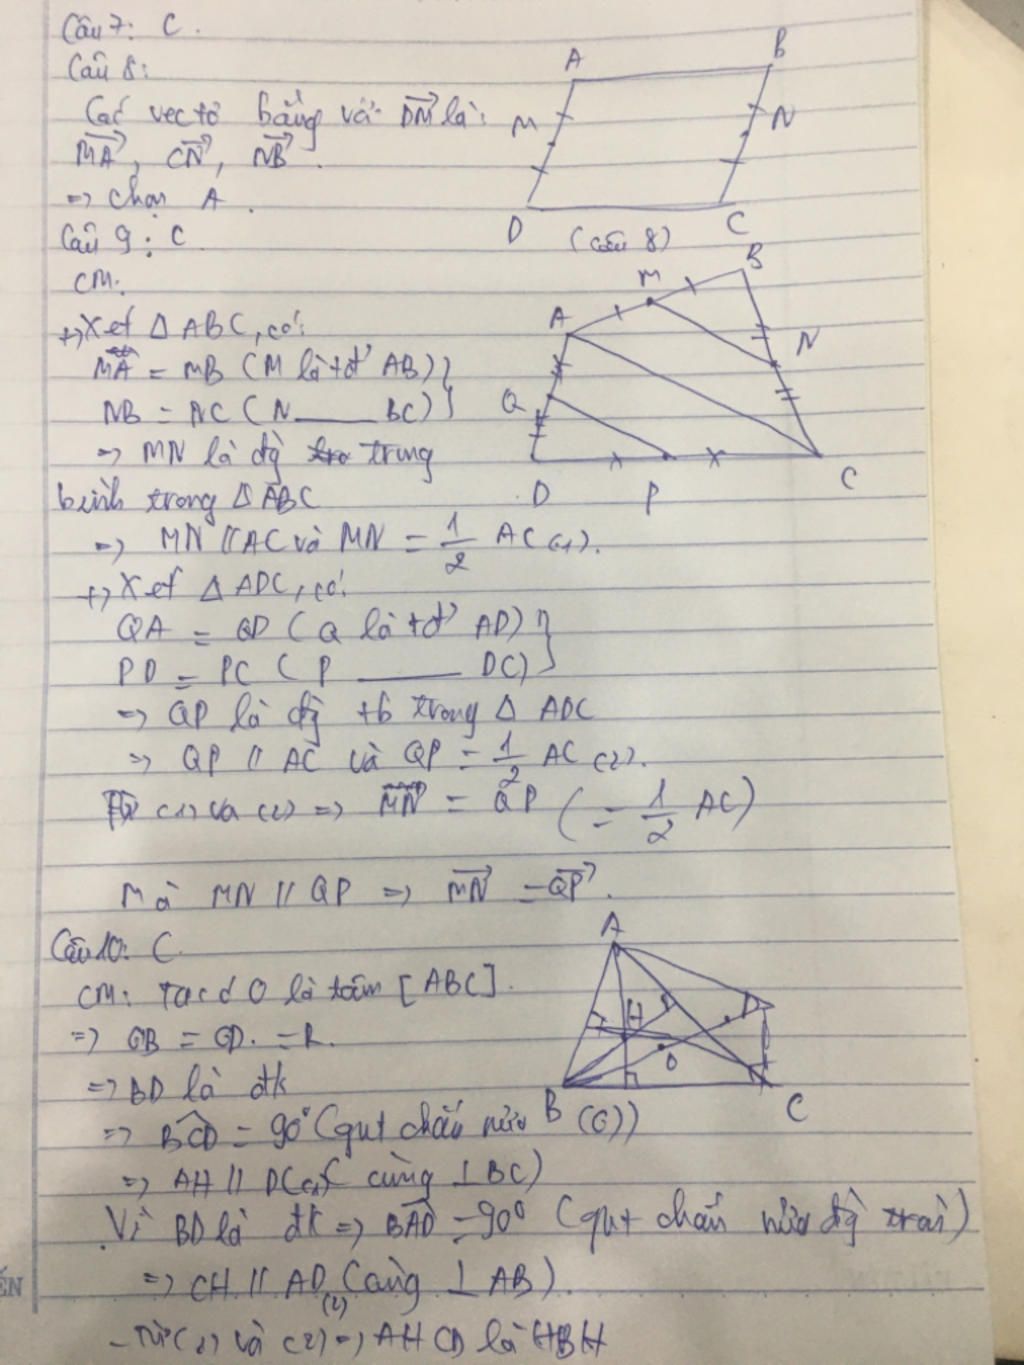 Câu 7: C.
Câu 8:
Các vectơ bằng với DM là:
MA, CN, NB.
=> chọn A.
A B
M N
D C
(câu 8)
Câu 9: C
CM:
+, Xét Δ ABC, có:
MA = MB (M là tđ AB)
NB = NC (N ___ BC)
=> MN là đg trung
bình trong Δ ABC
=> MN // AC và MN = 1/2 AC (1).
M B
A N
Q
D P C
+, Xét Δ ADC, có:
QA = QD (Q là tđ AD)
PD = PC (P ___ DC)
=> QP là đg tb trong Δ ADC
=> QP // AC và QP = 1/2 AC (2).
Từ (1) và (2) => MN = QP (= 1/2 AC)
Mà MN // QP => MN = QP.
Câu 10: C.
CM: Ta có O là tâm [ABC].
=> OB = OD. = R.
=> BD là đk
=> BCD = 90° (gnt chắn nửa (O))
=> AH // DC (1) ( cùng ⊥ BC)
A
H D
O
B C
Vì BD là đk => BAD = 90° (gnt chắn nửa đg tròn)
=> CH // AD (2) (cùng ⊥ AB).
- Từ (1) và (2) => AHCD là HBH
ẾN